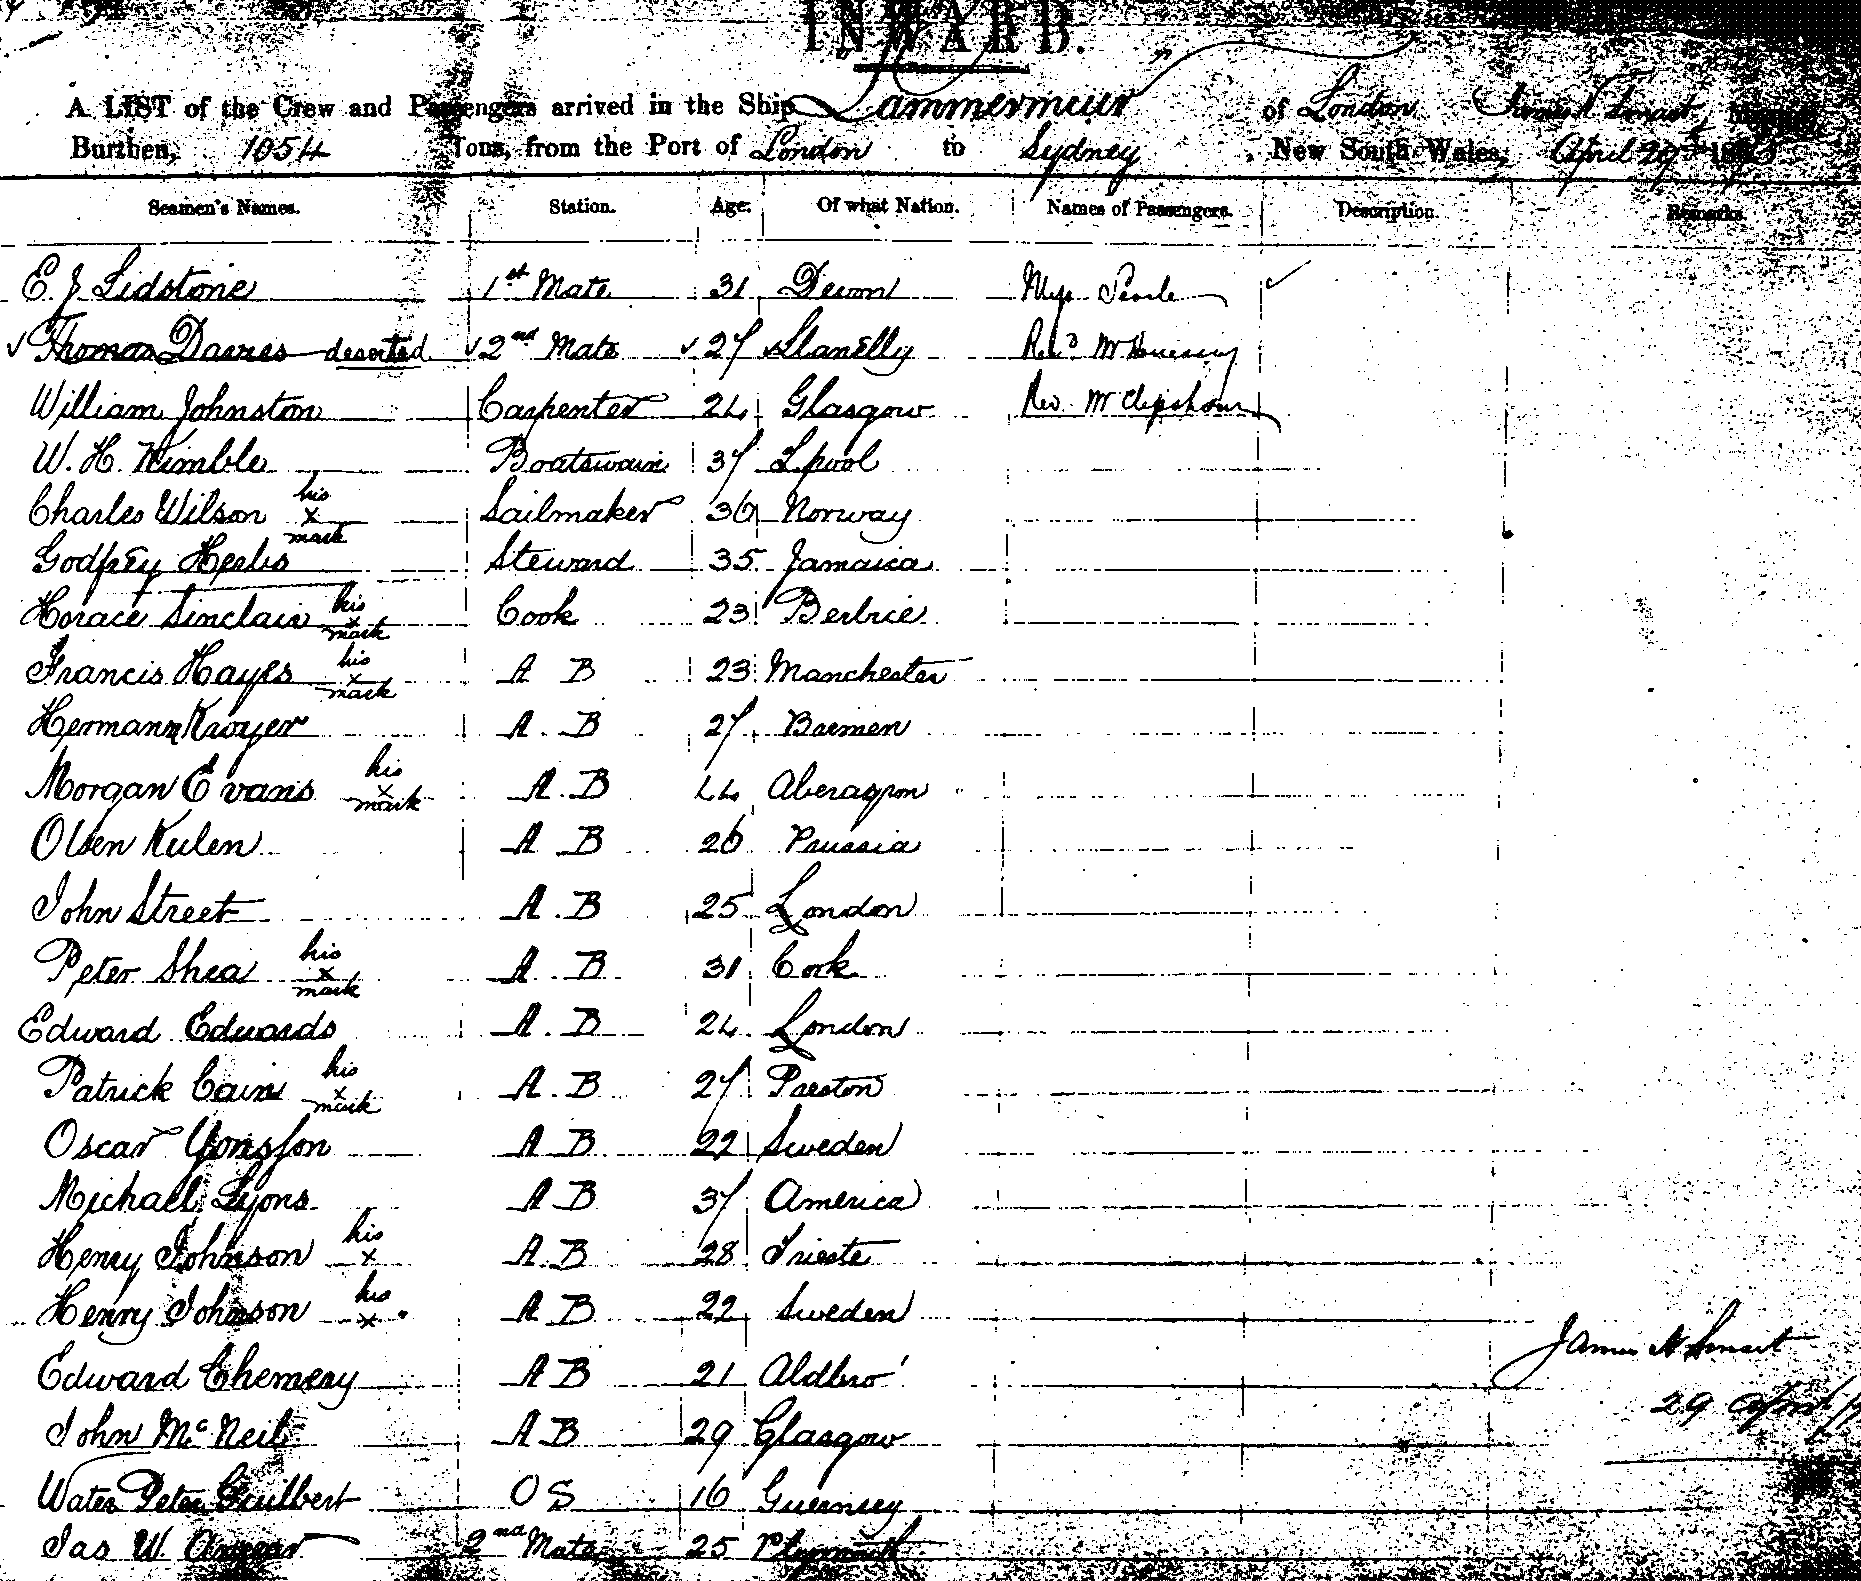 INWARD.
A LIST of the Crew and Passengers arrived in the Ship Lammermuir of London James N Smart,
Burthen, 1054 Tons, from the Port of London to Sydney, New South Wales, April 29th
Seamen's Names. Station. Age. Of what Nation. Names of Passengers. Description. Remarks.
E. J Lidstone 1st Mate 31 Devon Miss
Thomas Davies deserted 2nd Mate 27 Llanelly Revd
William Johnston Carpenter 24 Glasgow Rev. Mr
W. H. Kimble Boatswain 37 Lpool
Charles Wilson his x mark Sailmaker 36 Norway
Godfrey Steward 35 Jamaica
Horace Sinclair his x mark Cook 23 Berbice
Francis Hayes his x mark A B 23 Manchester
Hermann Kroyer A. B 27 Bremen
Morgan Evans his x mark A. B 44 Aberavon
Olsen Kulen A B 26 Prussia
John Street A. B 25 London
Peter Shea his x mark A. B 31 Cork
Edward Edwards A. B 24 London
Patrick Cain his x mark A. B 27 Preston
Oscar Yonsson A B 22 Sweden
Michael Lyons A B 37 America
Henry Johnson his x A B 28 Trieste
Henry Johnson his x A B 22 Sweden
James N Smart
Edward Chemery A B 21 Aldbro'
29 April
John McNeil A B 29 Glasgow
Water Peter Guilbert O S 16 Guernsey
Jas W. 2nd Mate 25 Plymouth